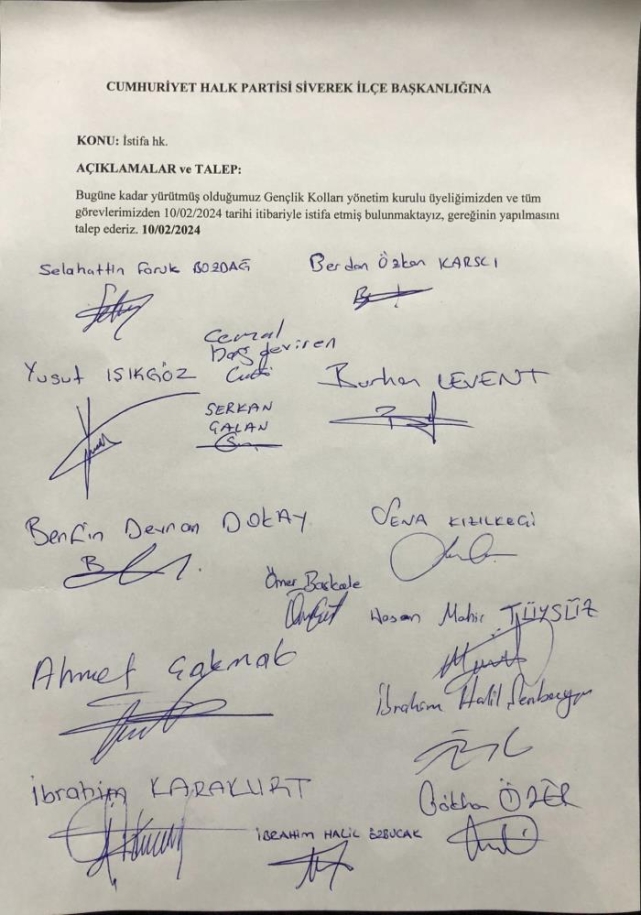 CUMHURİYET HALK PARTİSİ SİVEREK İLÇE BAŞKANLIĞINA
KONU: İstifa hk.
AÇIKLAMALAR ve TALEP:
Bugüne kadar yürütmüş olduğumuz Gençlik Kolları yönetim kurulu üyeliğimizden ve tüm
görevlerimizden 10/02/2024 tarihi itibariyle istifa etmiş bulunmaktayız, gereğinin yapılmasını
talep ederiz. 10/02/2024
Selahattin Faruk BOZDAĞ
Berdan Özkan KARSCI
Yusuf IŞIKGÖZ
Cemal
Başdeviren
SERKAN
GALAN
Burhan LEVENT
Benfin Devran DOKAY
SENA KIZILKEÇİ
Ömer Başkale
Hasan Mahir TÜYSÜZ
Ahmet Çakmak
İbrahim Halil
İbrahim KARAKURT
İBRAHİM HALİL ÖZBUCAK
Gökhan ÖZER